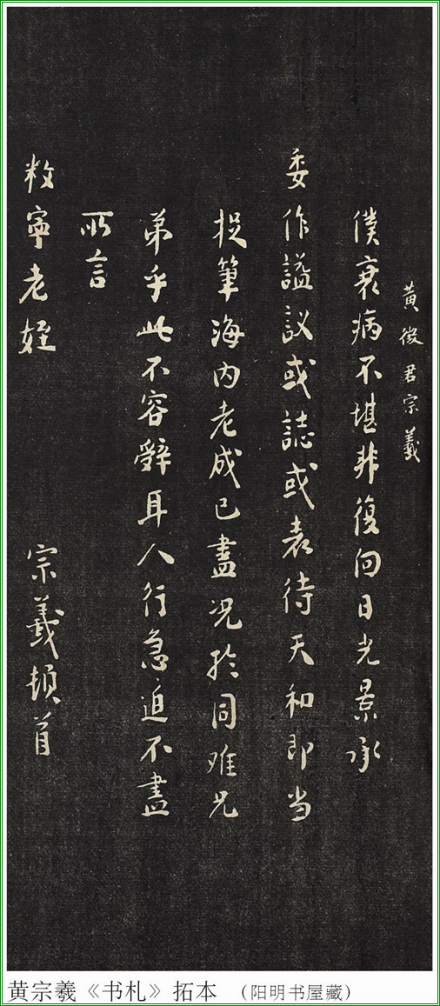 黄徵君宗羲
僕衰病不堪非復向日光景承
委作謚议或誌或表待天和即当
捉筆海内老成已盡况於同难兄
弟乎此不容辤耳人行急迫不盡
所言
敉寧老姪
宗羲頓首
黄宗羲《书札》拓本 （阳明书屋藏）